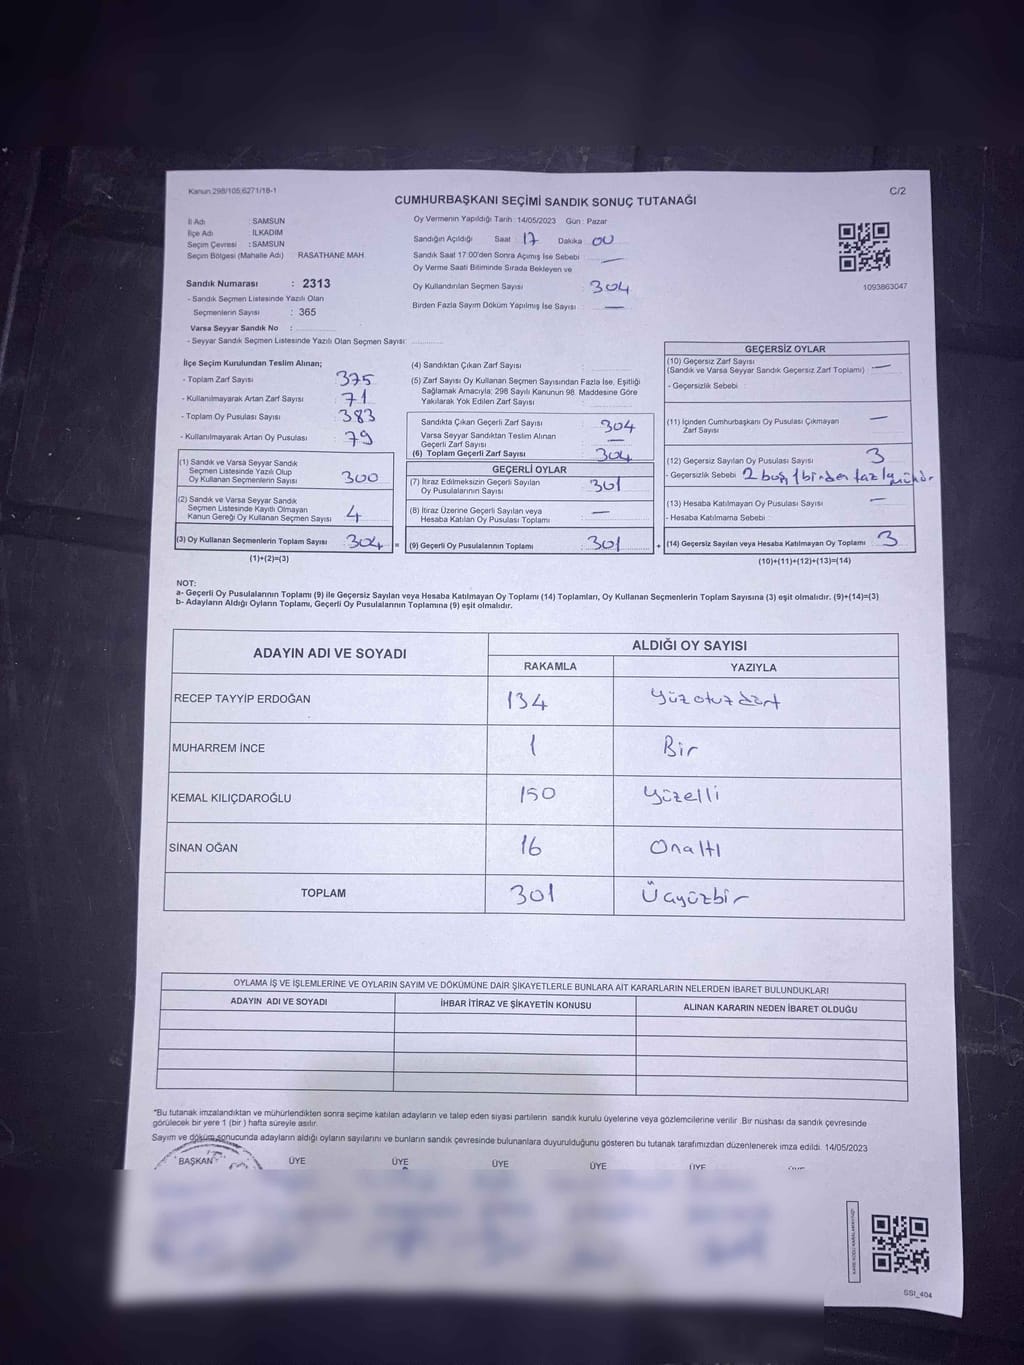 Kanun 298/105;6271/18-1
C/2
CUMHURBAŞKANI SEÇİMİ SANDIK SONUÇ TUTANAĞI
İl Adı : SAMSUN
İlçe Adı : İLKADIM
Seçim Çevresi : SAMSUN
Seçim Bölgesi (Mahalle Adı) RASATHANE MAH.
Sandık Numarası : 2313
- Sandık Seçmen Listesinde Yazılı Olan
Seçmenlerin Sayısı : 365
Varsa Seyyar Sandık No :
- Seyyar Sandık Seçmen Listesinde Yazılı Olan Seçmen Sayısı:
Oy Vermenin Yapıldığı Tarih : 14/05/2023 Gün : Pazar
Sandığın Açıldığı Saat 17 Dakika 00
Sandık Saat 17:00'den Sonra Açımış İse Sebebi —
Oy Verme Saati Bitiminde Sırada Bekleyen ve
Oy Kullandırılan Seçmen Sayısı : 304
Birden Fazla Sayım Döküm Yapılmış İse Sayısı : —
1093863047
İlçe Seçim Kurulundan Teslim Alınan;
- Toplam Zarf Sayısı 375
- Kullanılmayarak Artan Zarf Sayısı : 71
- Toplam Oy Pusulası Sayısı : 383
- Kullanılmayarak Artan Oy Pusulası : 79
(1) Sandık ve Varsa Seyyar Sandık
Seçmen Listesinde Yazılı Olup
Oy Kullanan Seçmenlerin Sayısı : 300
(2) Sandık ve Varsa Seyyar Sandık
Seçmen Listesinde Kayıtlı Olmayan
Kanun Gereği Oy Kullanan Seçmen Sayısı : 4
(3) Oy Kullanan Seçmenlerin Toplam Sayısı : 304 =
(1)+(2)=(3)
(4) Sandıktan Çıkan Zarf Sayısı :
(5) Zarf Sayısı Oy Kullanan Seçmen Sayısından Fazla İse, Eşitliği
Sağlamak Amacıyla; 298 Sayılı Kanunun 98. Maddesine Göre
Yakılarak Yok Edilen Zarf Sayısı :
Sandıkta Çıkan Geçerli Zarf Sayısı : 304
Varsa Seyyar Sandıktan Teslim Alınan
Geçerli Zarf Sayısı : —
(6) Toplam Geçerli Zarf Sayısı : 304
GEÇERLİ OYLAR
(7) İtiraz Edilmeksizin Geçerli Sayılan
Oy Pusulalarının Sayısı : 301
(8) İtiraz Üzerine Geçerli Sayılan veya
Hesaba Katılan Oy Pusulası Toplamı : —
(9) Geçerli Oy Pusulalarının Toplamı : 301 +
GEÇERSİZ OYLAR
(10) Geçersiz Zarf Sayısı
(Sandık ve Varsa Seyyar Sandık Geçersiz Zarf Toplamı) : —
- Geçersizlik Sebebi :
(11) İçinden Cumhurbaşkanı Oy Pusulası Çıkmayan
Zarf Sayısı : —
(12) Geçersiz Sayılan Oy Pusulası Sayısı : 3
- Geçersizlik Sebebi 2 boş, 1 birden fazla mühür
(13) Hesaba Katılmayan Oy Pusulası Sayısı : —
- Hesaba Katılmama Sebebi :
(14) Geçersiz Sayılan veya Hesaba Katılmayan Oy Toplamı : 3
(10)+(11)+(12)+(13)=(14)
NOT:
a- Geçerli Oy Pusulalarının Toplamı (9) ile Geçersiz Sayılan veya Hesaba Katılmayan Oy Toplamı (14) Toplamları, Oy Kullanan Seçmenlerin Toplam Sayısına (3) eşit olmalıdır. (9)+(14)=(3)
b- Adayların Aldığı Oyların Toplamı, Geçerli Oy Pusulalarının Toplamına (9) eşit olmalıdır.
ADAYIN ADI VE SOYADI ALDIĞI OY SAYISI
RAKAMLA YAZIYLA
RECEP TAYYİP ERDOĞAN 134 Yüzotuzdört
MUHARREM İNCE 1 Bir
KEMAL KILIÇDAROĞLU 150 Yüzelli
SİNAN OĞAN 16 Onaltı
TOPLAM 301 Üçyüzbir
OYLAMA İŞ VE İŞLEMLERİNE VE OYLARIN SAYIM VE DÖKÜMÜNE DAİR ŞİKAYETLERLE BUNLARA AİT KARARLARIN NELERDEN İBARET BULUNDUKLARI
ADAYIN ADI VE SOYADI İHBAR İTİRAZ VE ŞİKAYETİN KONUSU ALINAN KARARIN NEDEN İBARET OLDUĞU
*Bu tutanak imzalandıktan ve mühürlendikten sonra seçime katılan adayların ve talep eden siyasi partilerin sandık kurulu üyelerine veya gözlemcilerine verilir. Bir nüshası da sandık çevresinde
görülecek bir yere 1 (bir) hafta süreyle asılır.
Sayım ve döküm sonucunda adayların aldığı oyların sayılarını ve bunların sandık çevresinde bulunanlara duyurulduğunu gösteren bu tutanak tarafımızdan düzenlenerek imza edildi. 14/05/2023
BAŞKAN ÜYE ÜYE ÜYE ÜYE ÜYE
SSI_404